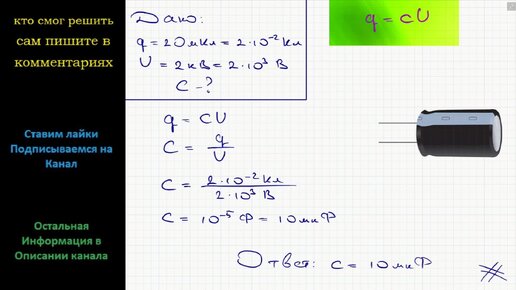 кто смог решить
сам пишите в
комментариях
Ставим лайки
Подписываемся на
Канал
Остальная
Информация в
Описании канала
Дано:
q = 20 мКл = 2·10⁻² Кл
U = 2 кВ = 2·10³ В
C - ?
q = CU
q = CU
C = q/U
C = 2·10⁻² Кл / 2·10³ В
C = 10⁻⁵ Ф = 10 мкФ
Ответ: C = 10 мкФ